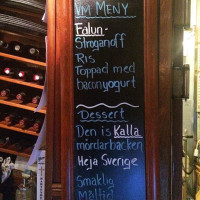 VM MENY
Falun-
Stroganoff
Ris
Toppad med
baconyogurt
Dessert
Den is Kalla
mördarbacken
Heja Sverige
Smaklig
Måltid